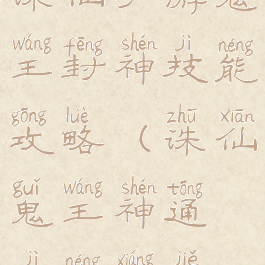 wáng fēng shén jì néng
王封神技能
gōng lüè zhū xiān
攻略（诛仙
guǐ wáng shén tōng
鬼王神通
jì néng xiáng jiě